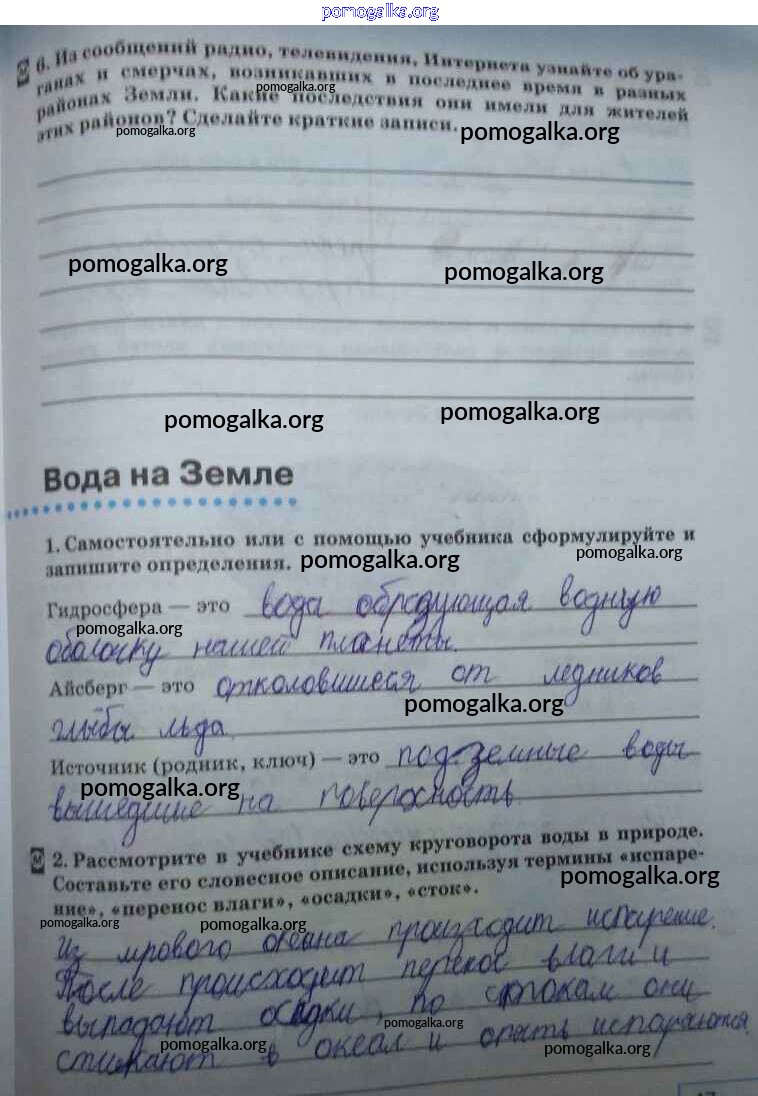 pomogalka.org
6. Из сообщений радио, телевидения, Интернета узнайте об ура-
ганах и смерчах, возникавших в последнее время в разных
pomogalka.org
районах Земли. Какие последствия они имели для жителей
этих районов? Сделайте краткие записи.
pomogalka.org
pomogalka.org
pomogalka.org
pomogalka.org
pomogalka.org
pomogalka.org
Вода на Земле
1. Самостоятельно или с помощью учебника сформулируйте и
запишите определения.
pomogalka.org
pomogalka.org
Гидросфера — это вода образующая водную
pomogalka.org
оболочку нашей планеты.
Айсберг — это отколовшиеся от ледников
pomogalka.org
глыбы льда.
Источник (родник, ключ) — это подземные воды
pomogalka.org
вышедшие на поверхность
2. Рассмотрите в учебнике схему круговорота воды в природе.
Составьте его словесное описание, используя термины «испаре-
pomogalka.org
ние», «перенос влаги», «осадки», «сток».
pomogalka.org
pomogalka.org
Из мрового океана происходит испарение.
После происходит перенос влаги и
выпадают осадки, по стокам они
pomogalka.org
стикают в океан и опять испаряются.
pomogalka.org
pomogalka.org